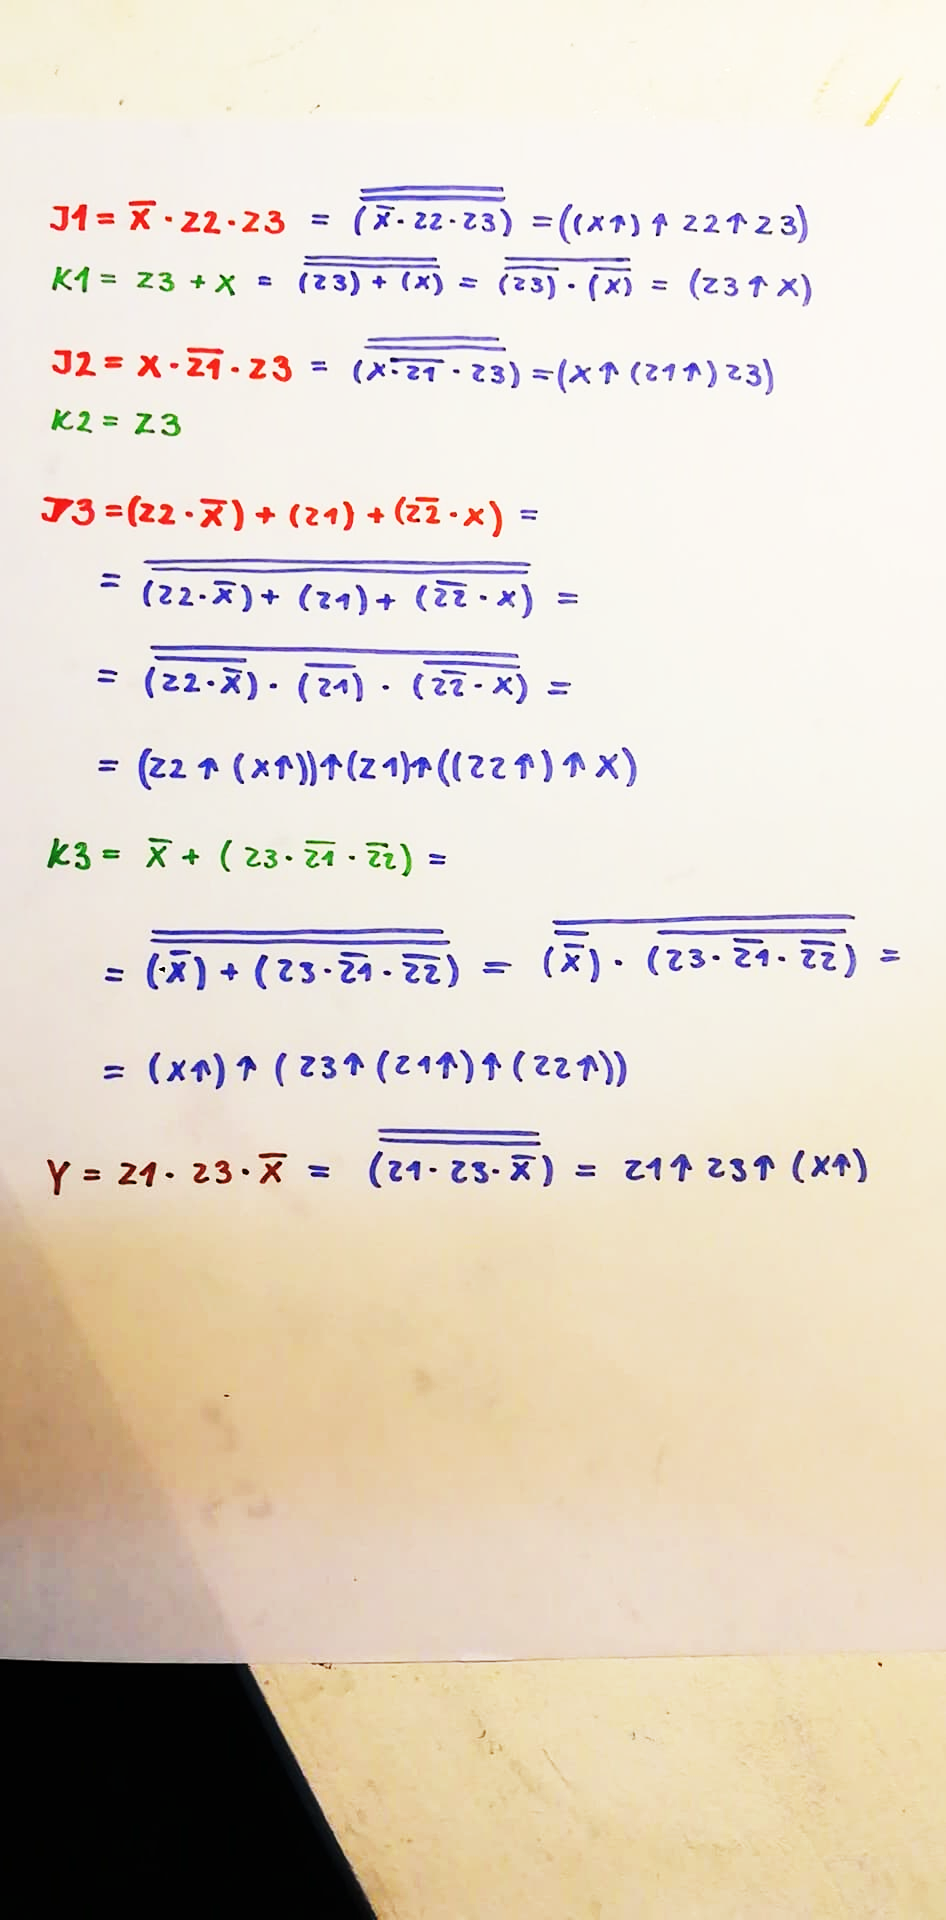 J1 = X̅ · Z2 · Z3 = (X̅ · Z2 · Z3)̿ = ((X↑) ↑ Z2 ↑ Z3)
K1 = Z3 + X = (Z3) + (X)̿ = (Z̅3̅) · (X̅)̅ = (Z3 ↑ X)
J2 = X · Z̅1̅ · Z3 = (X · Z̅1̅ · Z3)̿ = (X ↑ (Z1↑) Z3)
K2 = Z3
J3 = (Z2 · X̅) + (Z1) + (Z̅2̅ · X) =
= (Z2 · X̅) + (Z1) + (Z̅2̅ · X)̿ =
= (Z̅2̅ ̅·̅ ̅X̿) · (Z̅1̅) · (Z̿2̿ ̅·̅ ̅X̅)̅ =
= (Z2 ↑ (X↑)) ↑ (Z1) ↑ ((Z2↑) ↑ X)
K3 = X̅ + (Z3 · Z̅1̅ · Z̅2̅) =
= (·X̅) + (Z3 · Z̅1̅ · Z̅2̅)̿ = (X̿) · (Z̅3̅ ̅·̅ ̅Z̿1̿ ̅·̅ ̅Z̿2̿)̅ =
= (X↑) ↑ (Z3 ↑ (Z1↑) ↑ (Z2↑))
Y = Z1 · Z3 · X̅ = (Z1 · Z3 · X̅)̿ = Z1 ↑ Z3 ↑ (X↑)